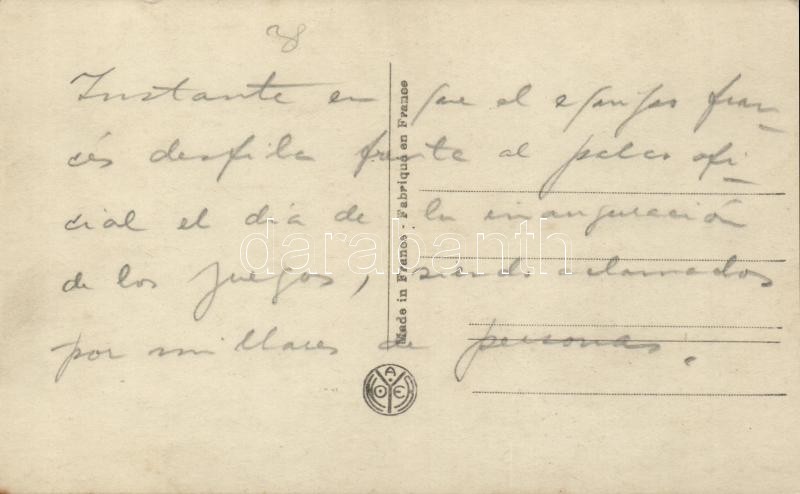 38
Instante en que el equipo fran-
cés desfila frente al palco ofi-
cial el día de la inauguración
de los juegos, siendo aclamados
por millares de personas.
Made in France - Fabriqué en France
darabanth
A
O E